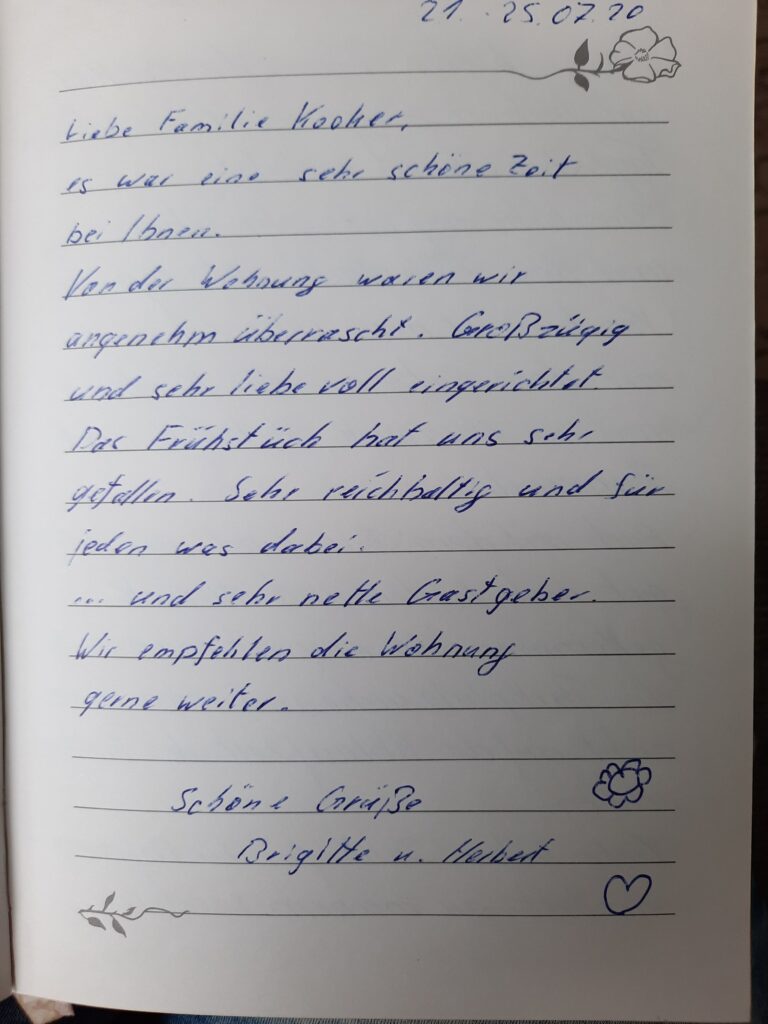 21. - 25.07.20
Liebe Familie Kooker,
es war eine sehr schöne Zeit
bei Ihnen.
Von der Wohnung waren wir
angenehm überrascht. Großzügig
und sehr liebevoll eingerichtet.
Das Frühstück hat uns sehr
gefallen. Sehr reichhaltig und für
jeden was dabei.
... und sehr nette Gastgeber.
Wir empfehlen die Wohnung
gerne weiter.
Schöne Grüße
Brigitte u. Herbert